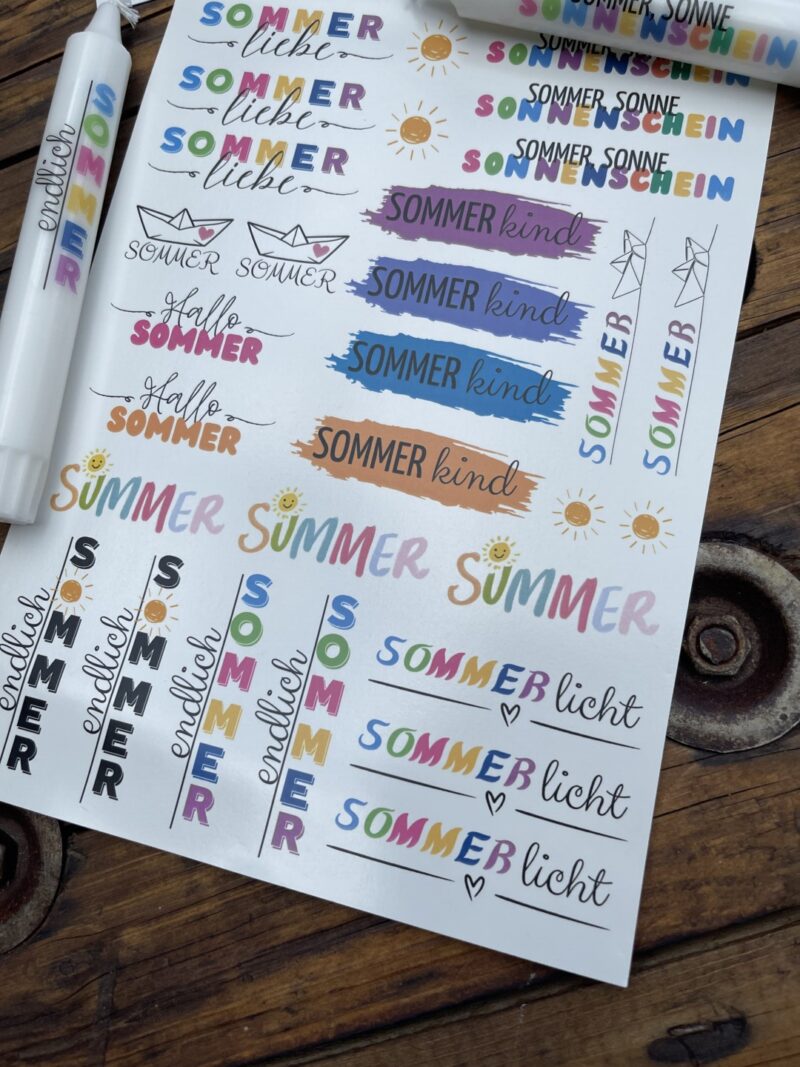 endlich
SOMMER
SOMMER, SONNE
SONNENSCHEIN
SOMMER
liebe
SOMMER
liebe
SOMMER
liebe
SOMMER, SONNE
SONNENSCHEIN
SOMMER, SONNE
SONNENSCHEIN
SOMMER, SONNE
SONNENSCHEIN
SOMMER
SOMMER
Hallo
SOMMER
Hallo
SOMMER
SOMMER kind
SOMMER kind
SOMMER kind
SOMMER kind
SOMMER
SOMMER
SUMMER
SUMMER
SUMMER
endlich
SMMER
endlich
SMMER
endlich
SOMMER
endlich
SOMMER
SOMMER licht
SOMMER licht
SOMMER licht